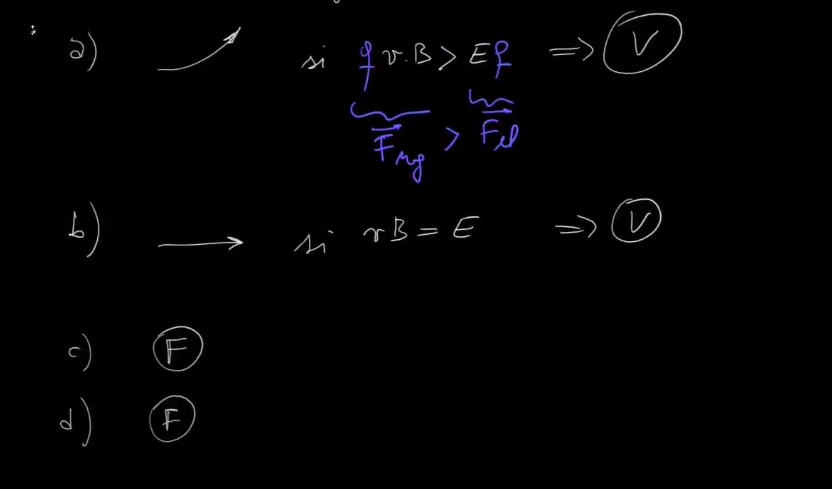 a) si q v.B > Eq => V
F mg > F el
b) si vB = E => V
c) F
d) F